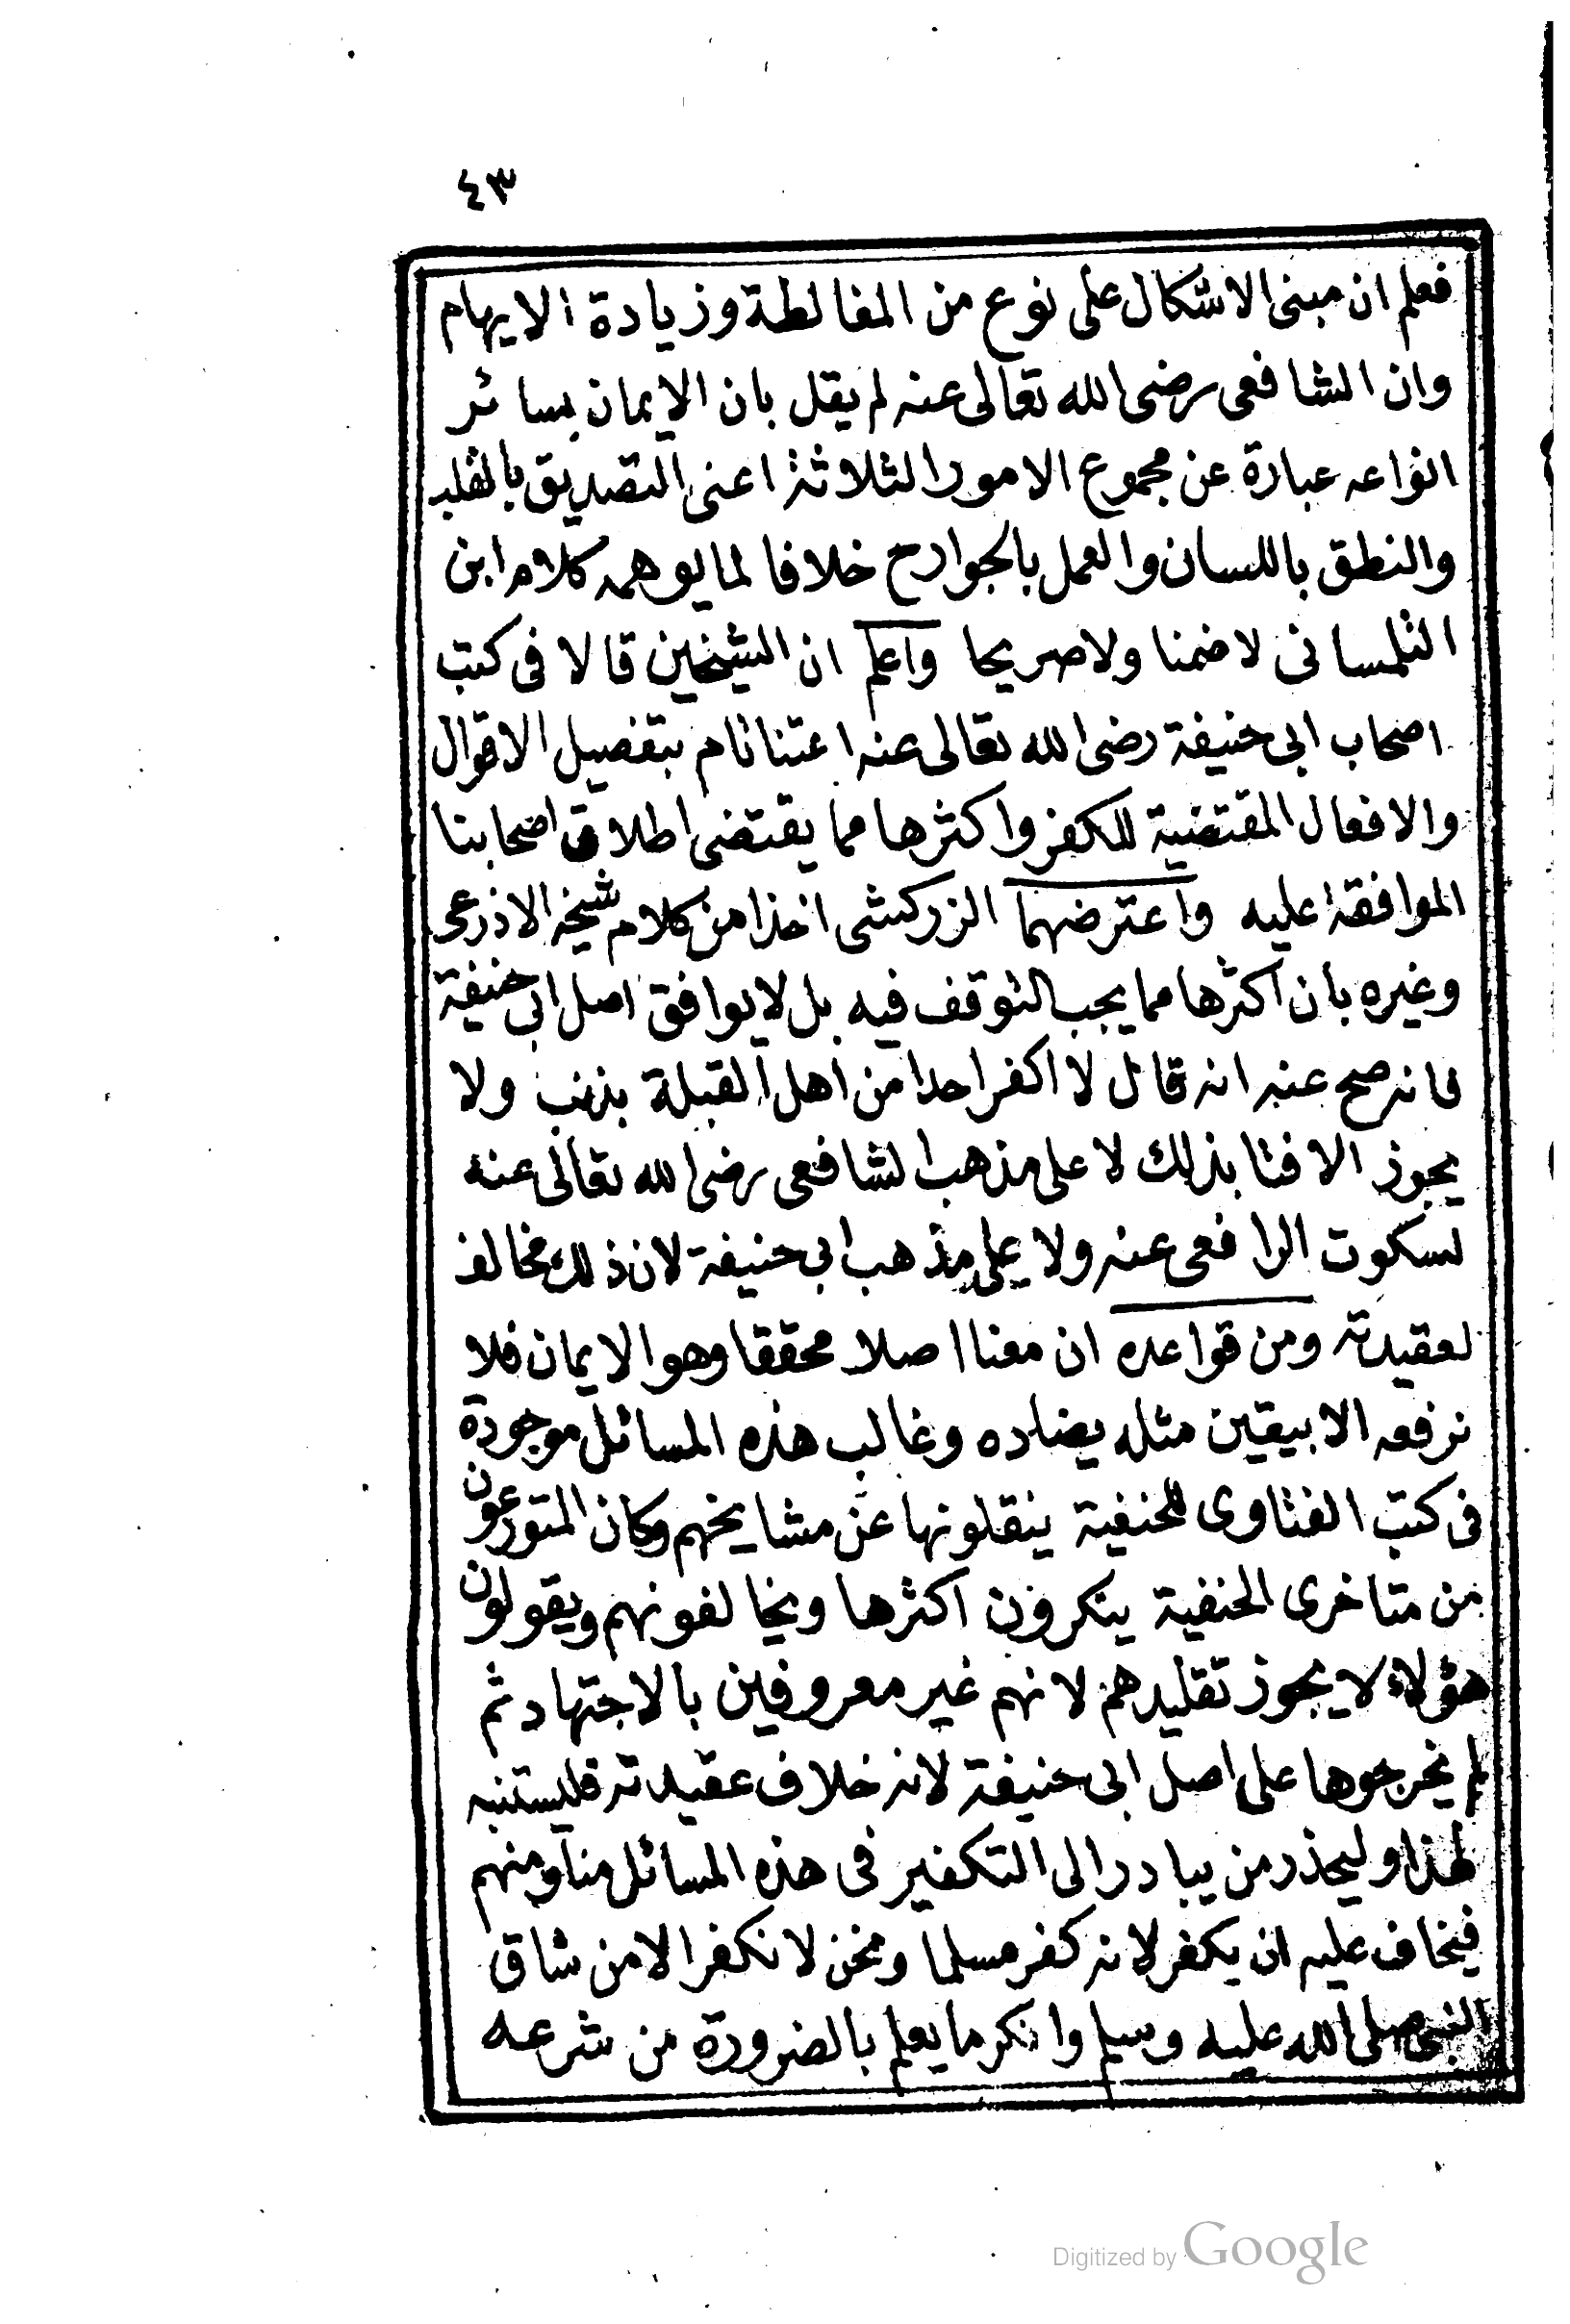 ٤٣
فعلم ان مبنى الاشكال على نوع من المغالطة وزيادة الايهام
وان الشافعى رضى الله تعالى عنه لم يقل بان الايمان بسائر
انواعه عبارة عن مجموع الامور الثلاثة اعنى التصديق بالقلب
والنطق باللسان والعمل بالجوارح خلافا لما يوهمه كلام ابن
التلمسانى لا ضمنا ولا صريحا واعلم ان الشيخين قالا فى كتب
اصحاب ابى حنيفة رضى الله تعالى عنه اعتنا تام بتفصيل الاقوال
والافعال المقتضية للكفر واكثرها مما يقتضى اطلاق اصحابنا
الموافقة عليه واعترضهما الزركشى اخذا من كلام شيخه الاذرعى
وغيره بان اكثرها مما يجب التوقف فيه بل لا يوافق اصل ابى حنيفة
فانه صح عنه انه قال لا اكفر احدا من اهل القبلة بذنب ولا
يجوز الافتا بذلك لا على مذهب الشافعى رضى الله تعالى عنه
لسكوت الرافعى عنه ولا على مذهب ابى حنيفة لان ذلك مخالف
لعقيدته ومن قواعده ان معنا اصلا محققا وهو الايمان فلا
نرفعه الا بيقين مثله يضاده وغالب هذه المسائل موجودة
فى كتب الفتاوى للحنفية ينقلونها عن مشايخهم وكان المتورعون
من متاخرى الحنفية ينكرون اكثرها ويخالفونهم ويقولون
هؤلاء لا يجوز تقليدهم لانهم غير معروفين بالاجتهاد ثم
لم يخرجوها على اصل ابى حنيفة لانه خلاف عقيدته فليستنبه
لهذا وليحذر من يبادر الى التكفير فى هذه المسائل منا ومنهم
فيخاف عليه ان يكفر لانه كفر مسلما ونحن لا نكفر الا من شاق
النبى صلى الله عليه وسلم وانكر ما يعلم بالضرورة من شرعه
Digitized by Google